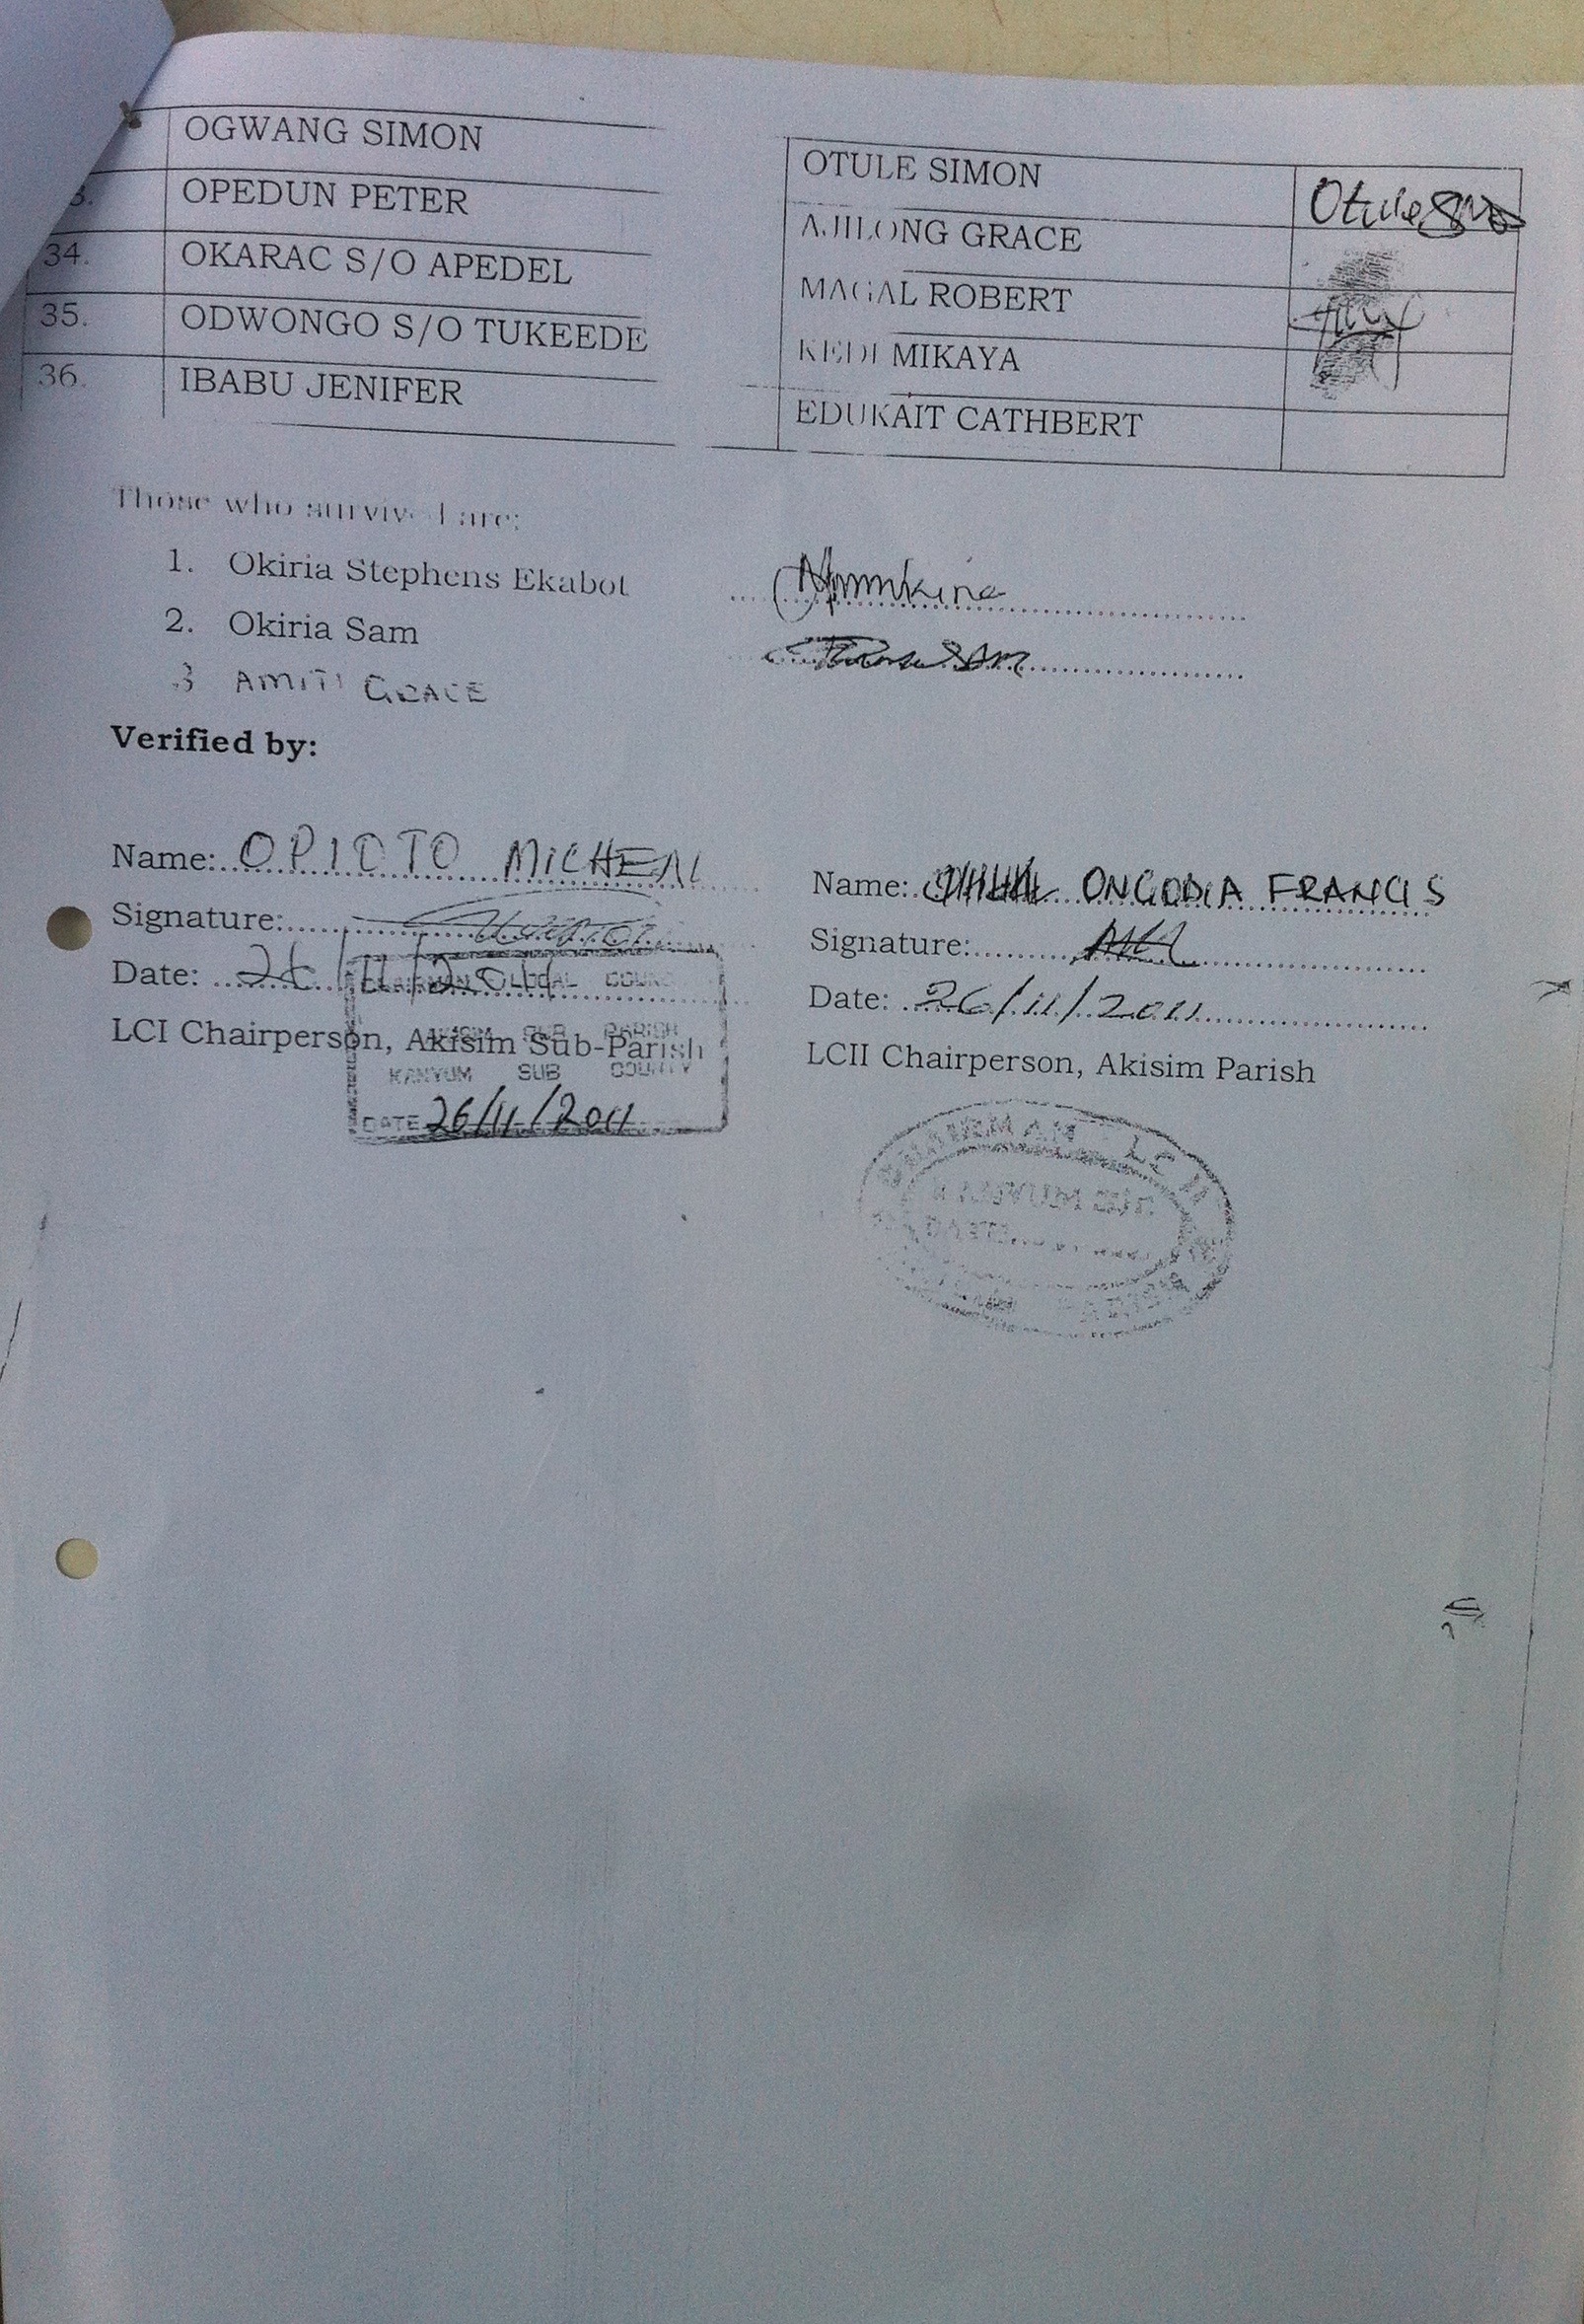 OGWANG SIMON OTULE SIMON Otule
3. OPEDUN PETER AJILONG GRACE
34. OKARAC S/O APEDEL MAGAL ROBERT
35. ODWONGO S/O TUKEEDE KEDI MIKAYA
36. IBABU JENIFER EDUKAIT CATHBERT
Those who survived are:
1. Okiria Stephens Ekabot
2. Okiria Sam
3 AMITI GRACE
Verified by:
Name: OPIOTO MICHEAL
Signature:
Date: 26/11/2011
LCI Chairperson, Akisim Sub-Parish
CHAIRMAN LOCAL COUNC
AKISIM SUB PARISH
KANYUM SUB COUNTY
DATE 26/11/2011
Name: ONGODIA FRANCIS
Signature:
Date: 26/11/2011
LCII Chairperson, Akisim Parish
CHAIRMAN LC II